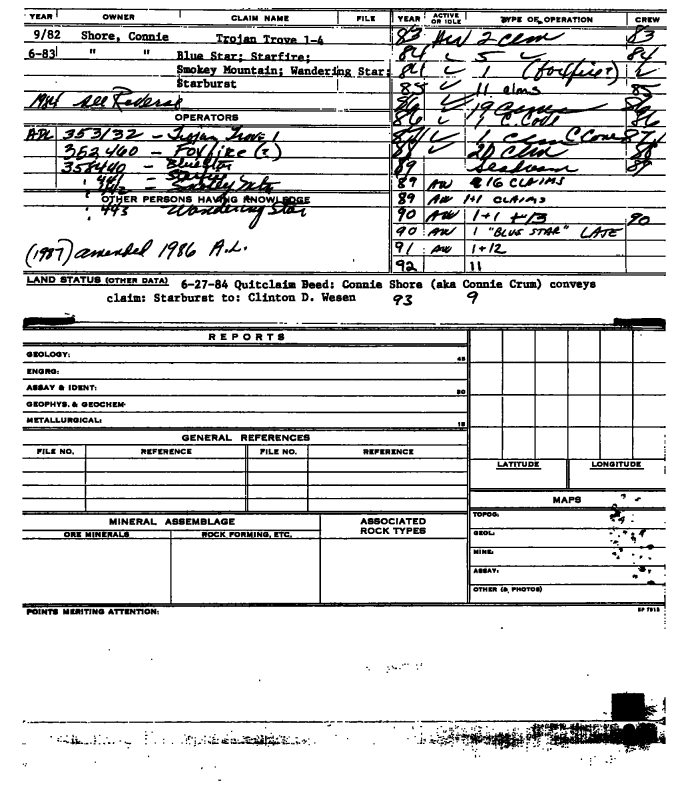 YEAR OWNER CLAIM NAME FILE YEAR ACTIVE OR IDLE TYPE OF OPERATION CREW
9/82 Shore, Connie Trojan Trove 1-4 83 AW 2 clem 83
6-83 " " Blue Star; Starfire; 84 5 84
Smokey Mountain; Wandering Star; 84 1
Starburst 85 11 clms 85
1984 See Reverse 86 19 86
OPERATORS 86 1 86
ADL 353132 - Trojan Trove 1 1
352460 - Foxfire (?) 88 20 88
358440 - Blue Star 89 89
441 - 89 AW 16 CLAIMS
442 - Smokey Mtn
OTHER PERSONS HAVING KNOWLEDGE 89 AW 1+1 CLAIMS
443 - Wandering Star 90 AW 1+1 +13 90
90 AW 1 "BLUE STAR" LATE
(1987) amended 1986 A.L. 91 AW 1+12
92 11
LAND STATUS (OTHER DATA) 6-27-84 Quitclaim Deed: Connie Shore (aka Connie Crum) conveys
claim: Starburst to: Clinton D. Wesen 93 9
REPORTS
GEOLOGY: 45
ENGRG:
ASSAY & IDENT: 30
GEOPHYS. & GEOCHEM-
METALLURGICAL: 15
GENERAL REFERENCES
FILE NO. REFERENCE FILE NO. REFERENCE
LATITUDE LONGITUDE
MAPS
MINERAL ASSEMBLAGE ASSOCIATED ROCK TYPES
ORE MINERALS ROCK FORMING, ETC.
TOPOG.
GEOL:
MINE:
ASSAY:
OTHER (& PHOTOS)
POINTS MERITING ATTENTION: